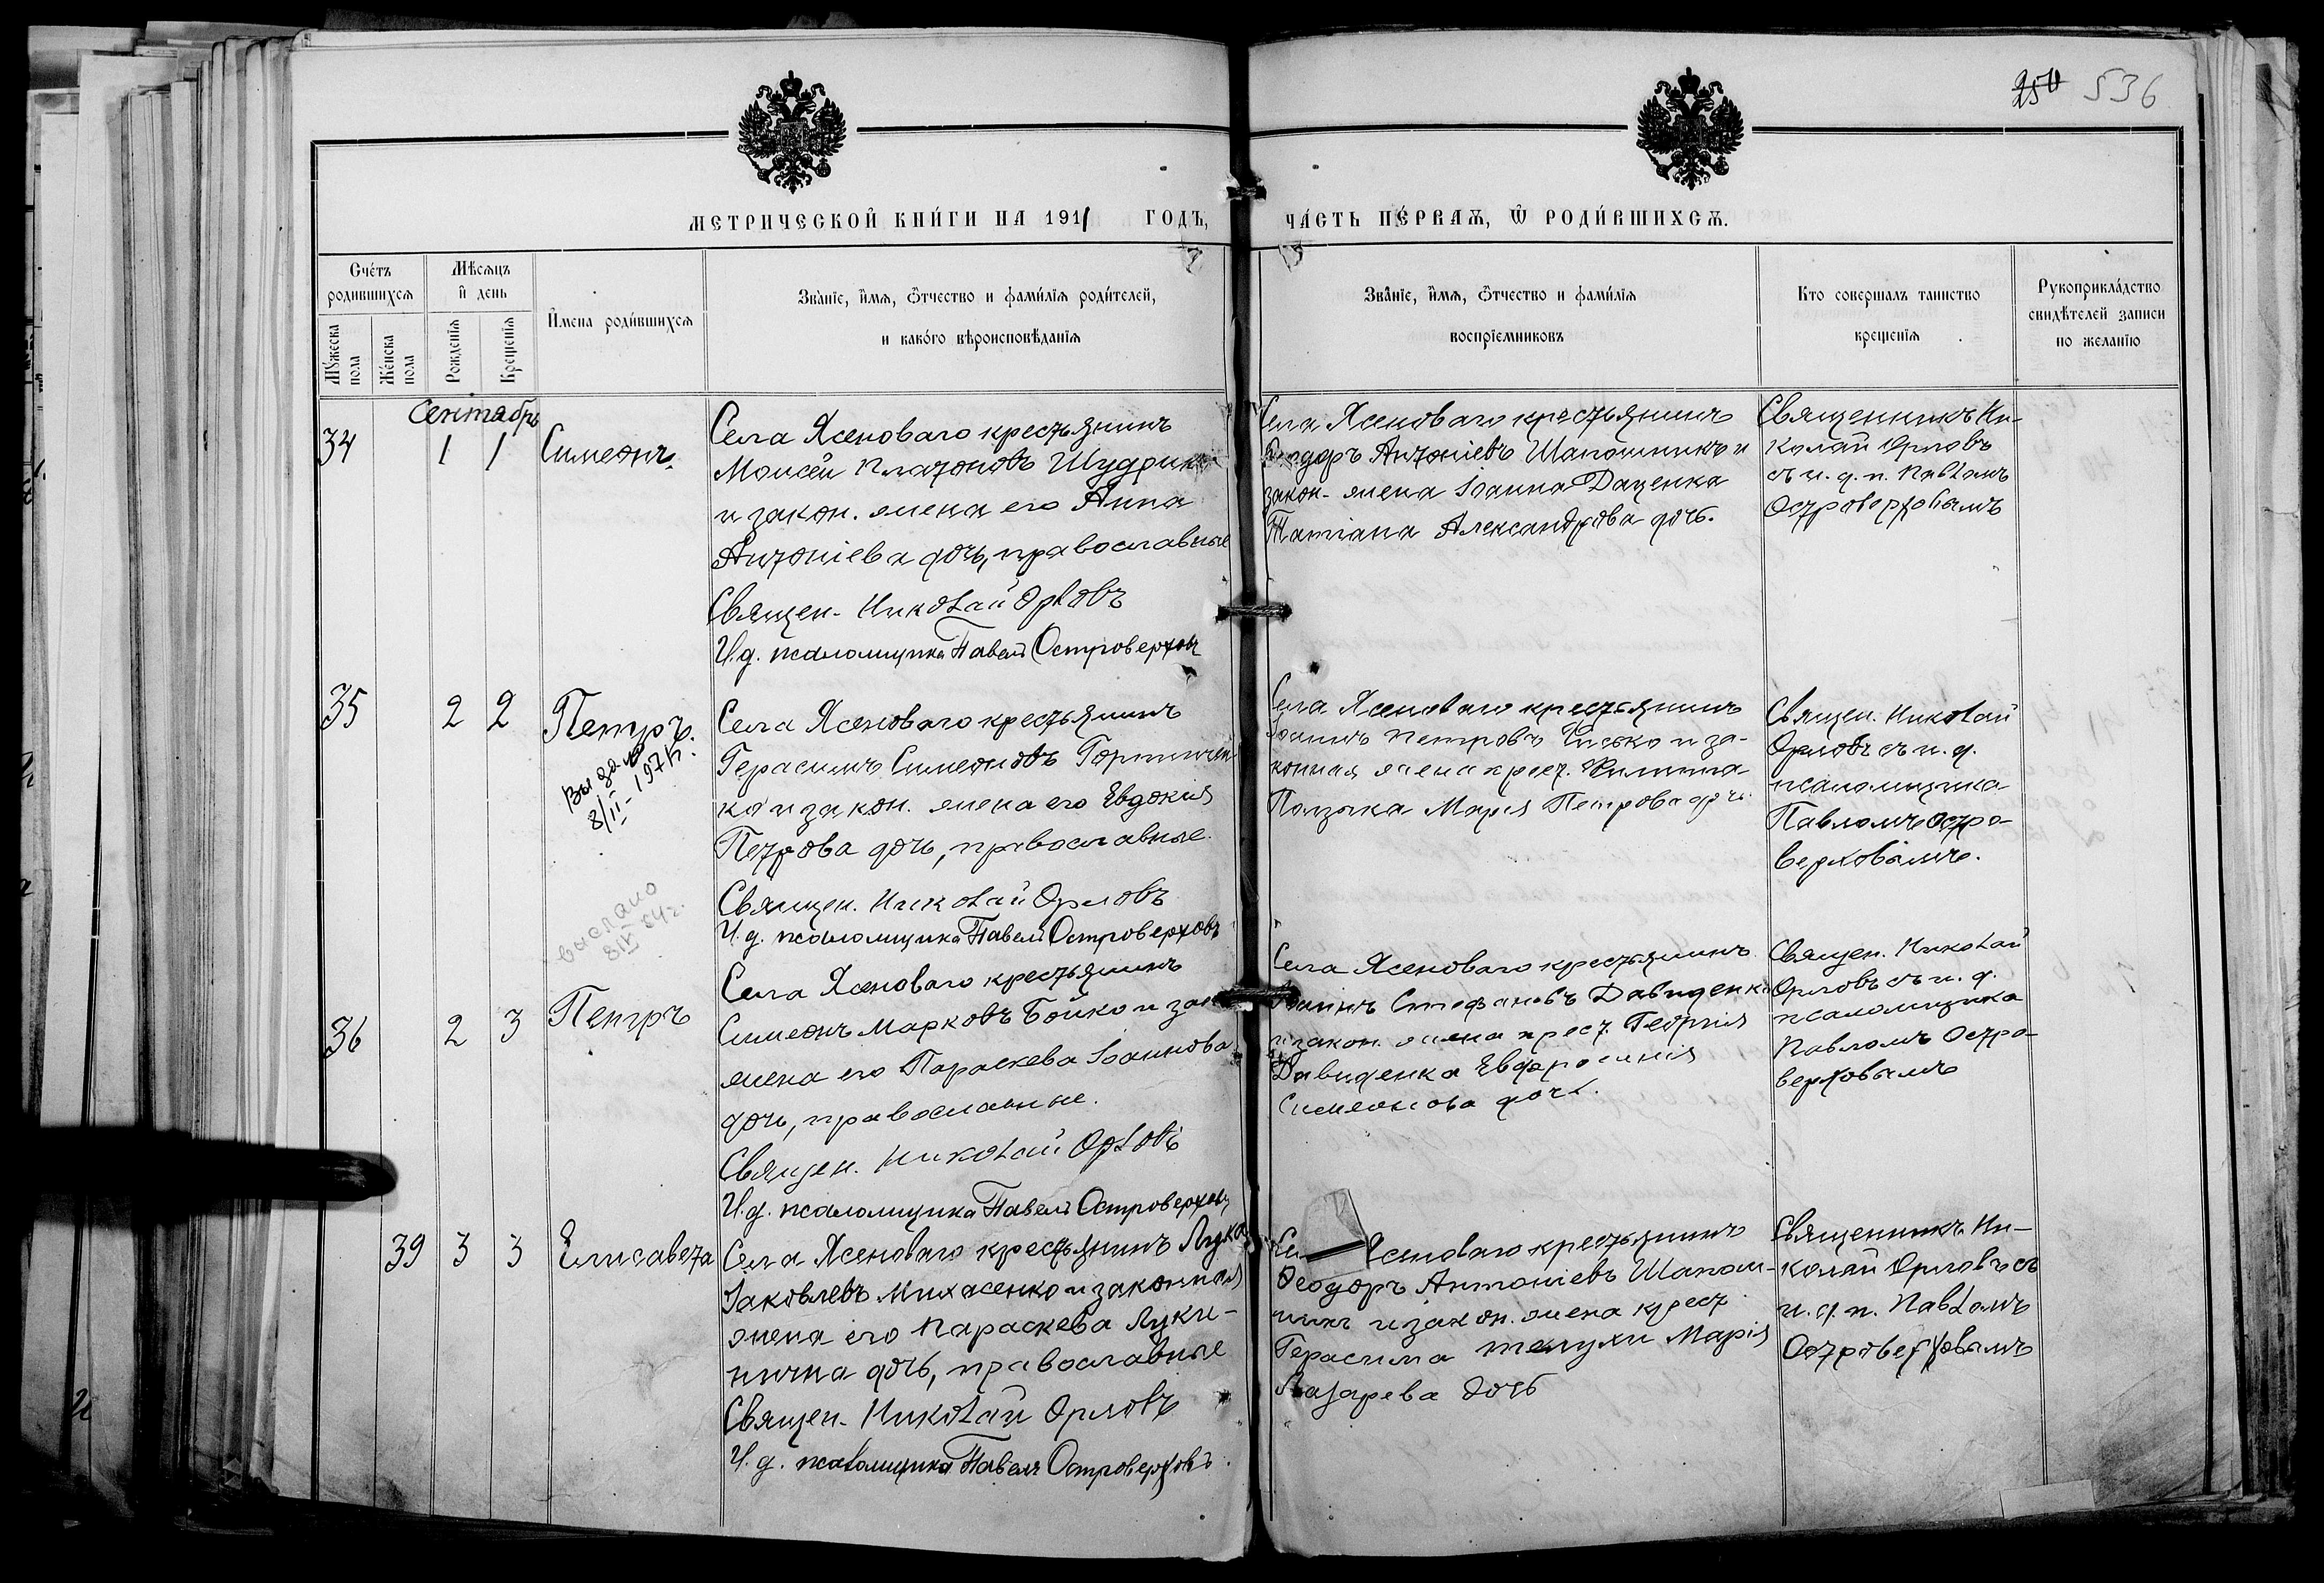 250 536
МЕТРИЧЕСКОЙ КНИ́ГИ НА 1911 ГОДЪ,
ЧА́СТЬ ПЕ́РВАѦ, Ѡ҆ РОДИ́ВШИХСѦ.
Сче́тъ родившихсѧ
Мѣсѧцъ и҆ день
И҆мена роди́вшихсѧ
Зва́нїе, и҆́мѧ, ѻ҆́тчество и фами́лїѧ роди́телей,
и како́го вѣроисповѣ́данїѧ
Зва́нїе, и҆́мѧ, ѻ҆́тчество и фами́лїѧ
воспрїемниковъ
Кто совершалъ таинство
крещенїѧ
Рукоприкла́дство
свидѣ́телей записи
по желанїю
Мꙋ́жеска пола
Же́нска пола
Рожденїѧ
Крещенїѧ
Сентябрь
34 1 1 Симеонъ.
Села Ясеноваго крестьянинъ
Моисей Платоновъ Шудрик
и закон. жена его Анна
Антоніева дочь, православные
Священ. Николай Орловъ
И.д. псаломщика Павелъ Островерховъ
Села Ясеноваго крестьянинъ
Ѳеодоръ Антоніевъ Шапошникъ и
закон. жена Іоанна Даценка
Татіана Александрова дочь.
Священникъ Ни-
колай Орловъ
съ и. д. п. Павломъ
Островерховымъ
35 2 2 Петръ.
Выдано
8/II-197
выслано
8/IV 54г.
Села Ясеноваго крестьянинъ
Герасимъ Симеоновъ
ко и закон. жена его Евдокія
Петрова дочь, православные.
Священ. Николай Орловъ
И.д. псаломщика Павелъ Островерховъ
Села Ясеноваго крестьянинъ
Іоаннъ Петровъ и за-
конная жена крест. Филиппа
Марія Петрова дочь.
Священ. Николай
Орловъ съ и. д.
псаломщика
Павломъ Остро-
верховымъ.
36 2 3 Петръ
Села Ясеноваго крестьянинъ
Симеонъ Марковъ Бойко и зак
жена его Параскева Іоаннова
дочь, православные.
Священ. Николай Орловъ
И.д. псаломщика Павелъ Островерховъ
Села Ясеноваго крестьянинъ
Іоаннъ Стефановъ Давиденко
и закон. жена крест. Георгія
Давиденка Евфросинія
Симеонова дочь.
Священ. Николай
Орловъ съ и. д.
псаломщика
Павломъ Остро-
верховымъ
39 3 3 Елисавета
Села Ясеноваго крестьянинъ Лука
Іаковлевъ Михасенко и законная
жена его Параскева Луки-
нична дочь, православные
Священ. Николай Орловъ
И.д. псаломщика Павелъ Островерховъ.
Ясеноваго крестьянинъ
Ѳеодоръ Антоніевъ Шапош-
никъ и закон. жена крест.
Герасима Марія
Лазарева дочь
Священникъ Ни-
колай Орловъ съ
и. д. п. Павломъ
Островерховымъ